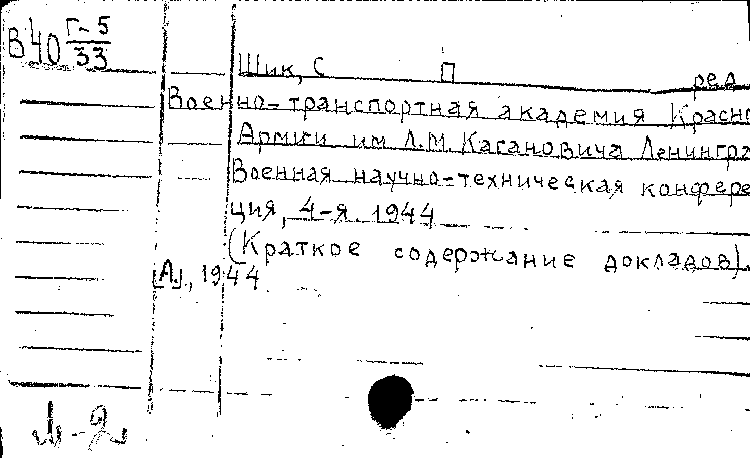 В40 Г-5
33
Шик, С П ред
Военно-транспортная академия Красн
Армии им Л.М. Кагановича Ленингра
Военная научно-техническая конфере
ция, 4-я. 1944
(Краткое содержание докладов).
[Л.], 1944